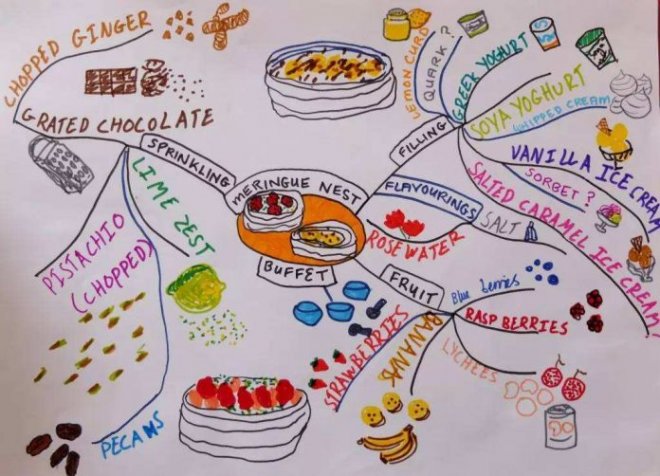 CHOPPED GINGER
GRATED CHOCOLATE
SPRINKLING
LIME ZEST
PISTACHIO
(CHOPPED)
PECANS
MERINGUE NEST
BUFFET
FILLING
LEMON CURD
QUARK?
GREEK YOGHURT
SOYA YOGHURT
WHIPPED CREAM
VANILLA ICE CREAM
SORBET?
SALTED CARAMEL ICE CREAM!
FLAVOURINGS
SALT
ROSE WATER
FRUIT
Blue berries
RASPBERRIES
LYCHEES
BANANAS
STRAWBERRIES